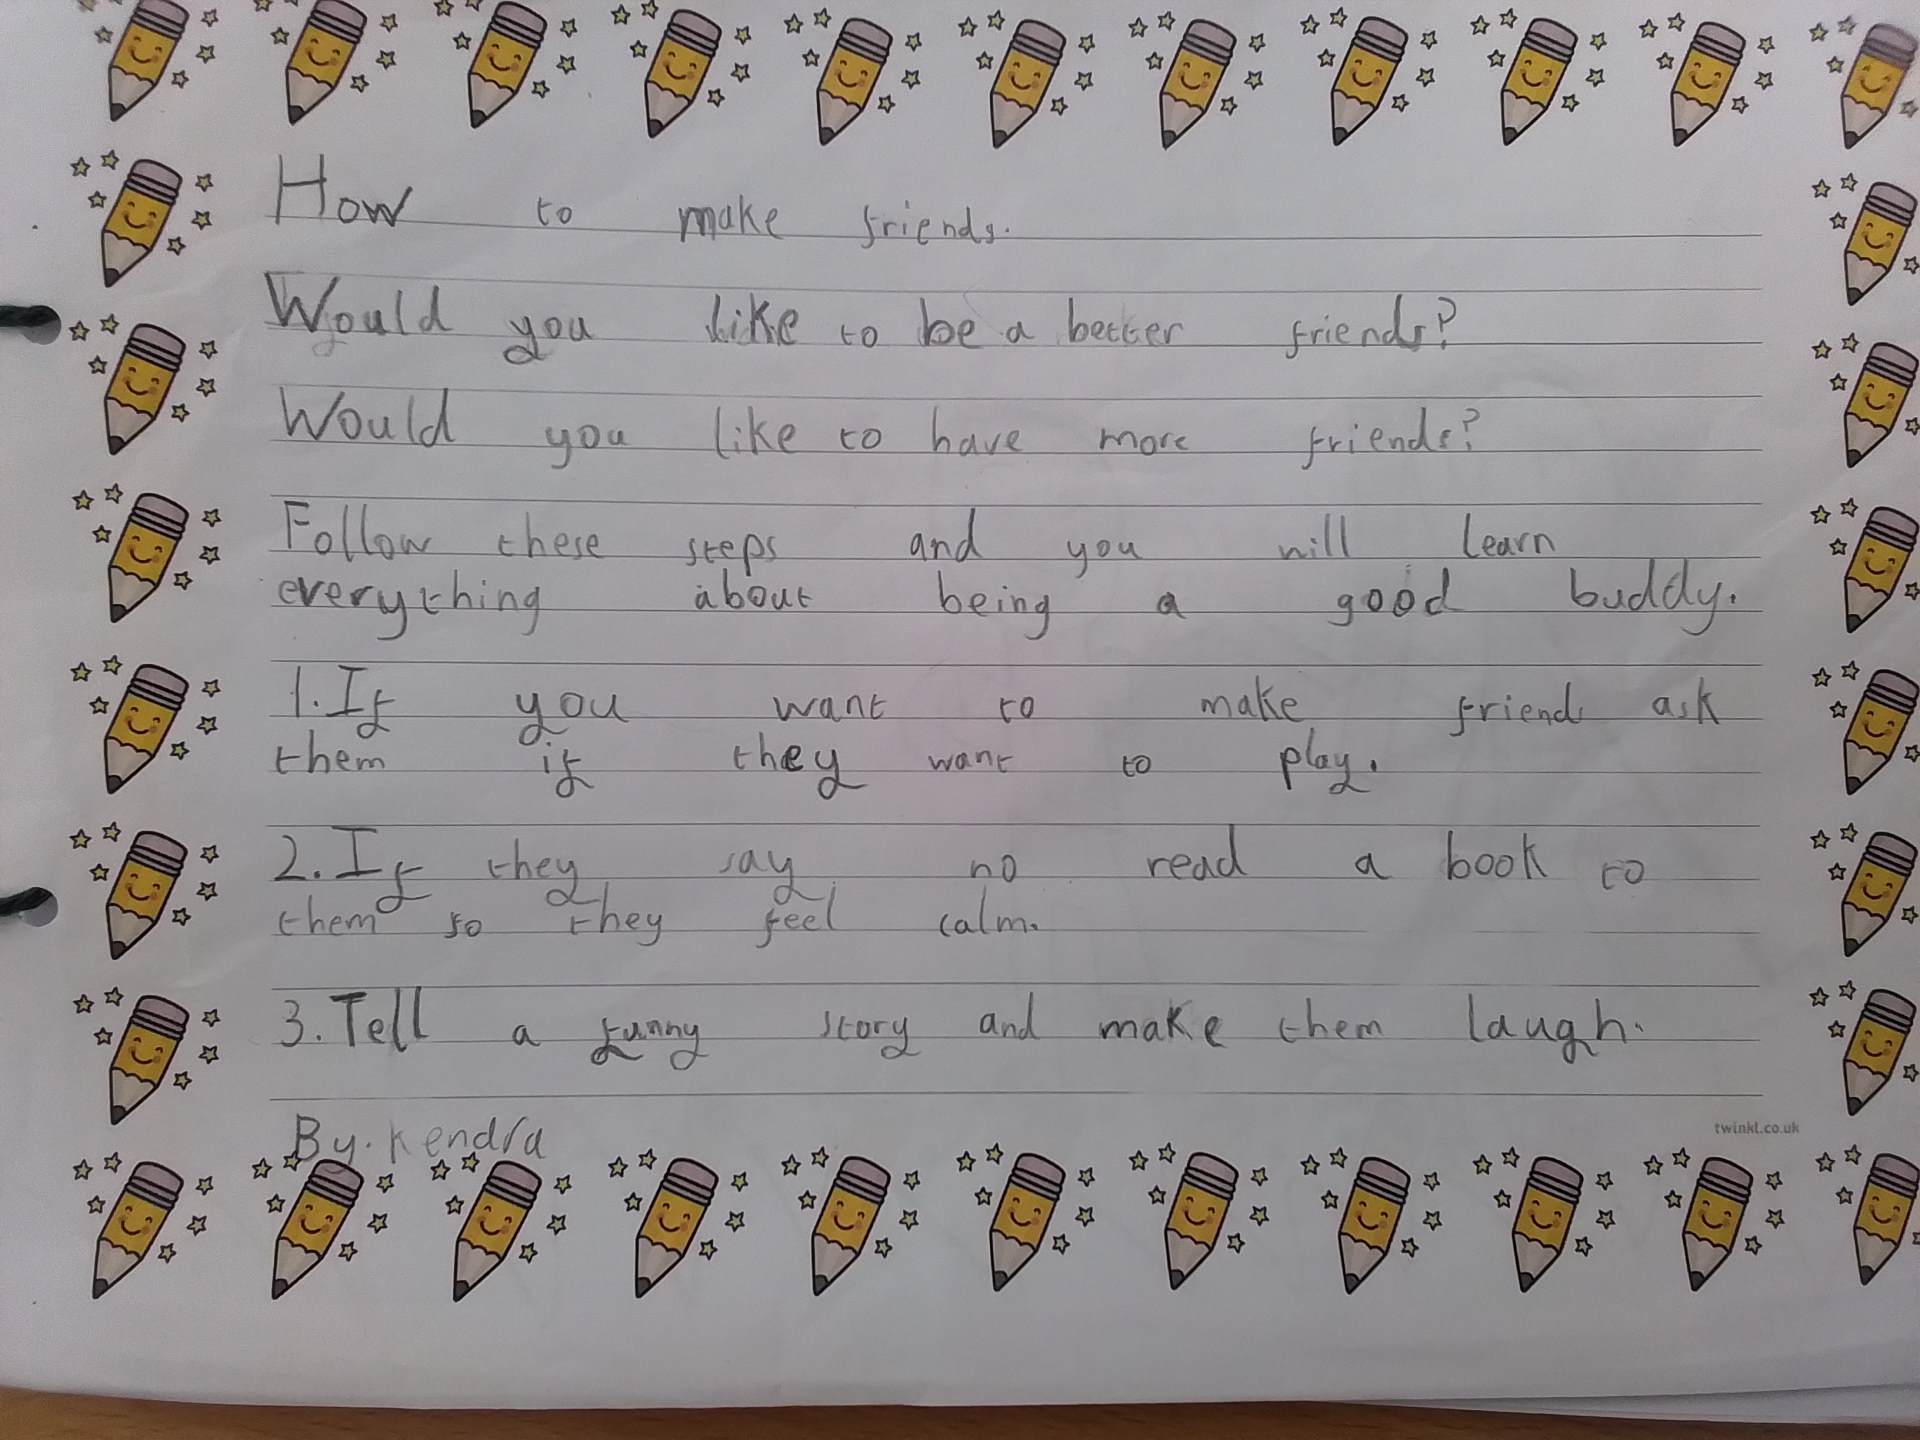 How to make friends.
Would you like to be a better friends?
Would you like to have more friends?
Follow these steps and you will learn
everything about being a good buddy.
1. If you want to make friends ask
them if they want to play.
2. If they say no read a book to
them so they feel calm.
3. Tell a funny story and make them laugh.
By. Kendra
twinkl.co.uk